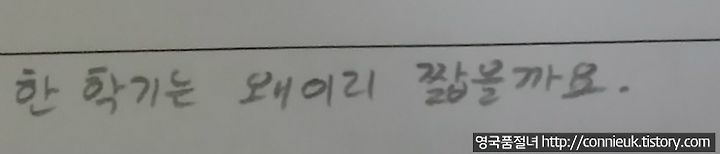 한 학기는 왜이리 짧을까요.
영국품절녀 http://connieuk.tistory.com